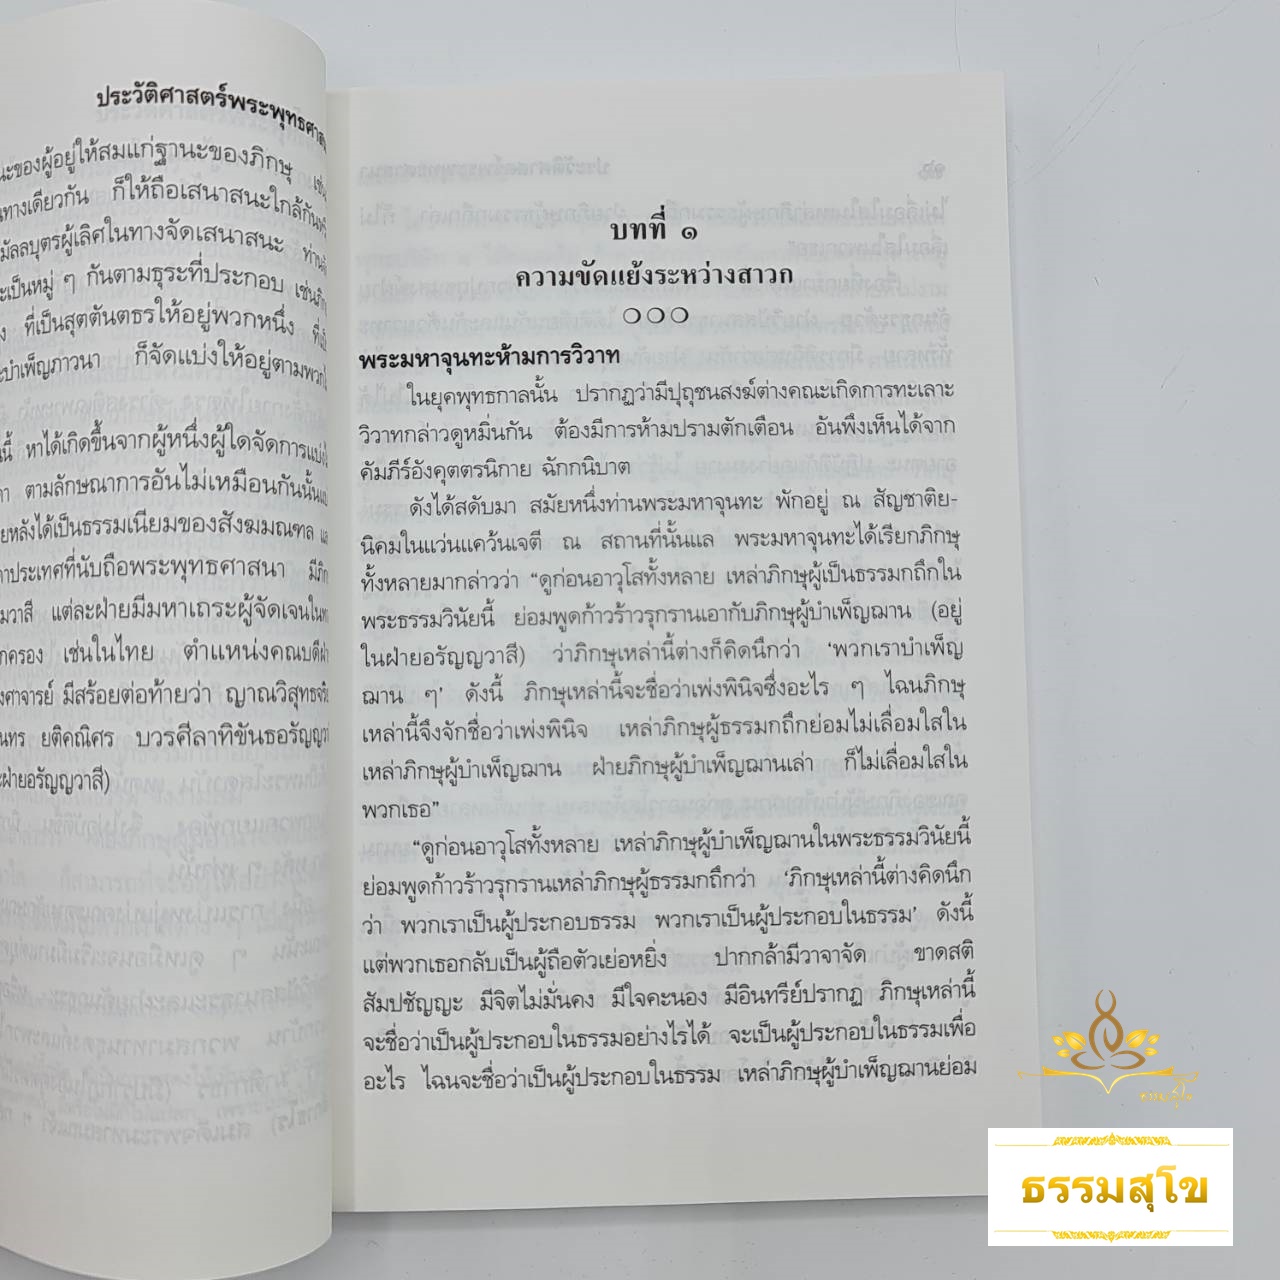 ประวัติศาสตร์พระพุทธศาสน
นะของผู้อยู่ให้สมแก่ฐานะของภิกษุ เช่น
นทางเดียวกัน ก็ให้ถือเสนาสนะใกล้กัน
มัลลบุตรผู้เลิศในทางจัดเสนาสนะ ท่าน
ะเป็นหมู่ ๆ กันตามธุระที่ประกอบ เช่น
ง ที่เป็นสุตตันตธรให้อยู่พวกหนึ่ง ที่
ะบำเพ็ญภาวนา ก็จัดแบ่งให้อยู่ตามพวก
นี้ หาได้เกิดขึ้นจากผู้หนึ่งผู้ใดจัดการแบ่ง
า ตามลักษณาการอันไม่เหมือนกันนั้น
ยหลังได้เป็นธรรมเนียมของสังฆมณฑล แ
าประเทศที่นับถือพระพุทธศาสนา มีภิก
มวาสี แต่ละฝ่ายมีมหาเถระผู้จัดเจนใน
กครอง เช่นในไทย ตำแหน่งคณบดี
งศาจารย์ มีสร้อยต่อท้ายว่า ญาณวิสุทธจริ
นทร ยติคณิศร บวรศีลาทิขันธอรัญญวา
ะฝ่ายอรัญญวาสี)
บทที่ ๑
ความขัดแย้งระหว่างสาวก
❍❍❍
พระมหาจุนทะห้ามการวิวาท
ในยุคพุทธกาลนั้น ปรากฏว่ามีปุถุชนสงฆ์ต่างคณะเกิดการทะเลาะ
วิวาทกล่าวดูหมิ่นกัน ต้องมีการห้ามปรามตักเตือน อันพึงเห็นได้จาก
คัมภีร์อังคุตตรนิกาย ฉักกนิบาต
ดังได้สดับมา สมัยหนึ่งท่านพระมหาจุนทะ พักอยู่ ณ สัญชาติย-
นิคมในแว่นแคว้นเจตี ณ สถานที่นั้นแล พระมหาจุนทะได้เรียกภิกษุ
ทั้งหลายมากล่าวว่า “ดูก่อนอาวุโสทั้งหลาย เหล่าภิกษุผู้เป็นธรรมกถึกใน
พระธรรมวินัยนี้ ย่อมพูดก้าวร้าวรุกรานเอากับภิกษุผู้บำเพ็ญฌาน (อยู่
ในฝ่ายอรัญญวาสี) ว่าภิกษุเหล่านี้ต่างก็คิดนึกว่า ‘พวกเราบำเพ็ญ
ฌาน ๆ’ ดังนี้ ภิกษุเหล่านี้จะชื่อว่าเพ่งพินิจซึ่งอะไร ๆ ไฉนภิกษุ
เหล่านี้จึงจักชื่อว่าเพ่งพินิจ เหล่าภิกษุผู้ธรรมกถึกย่อมไม่เลื่อมใสใน
เหล่าภิกษุผู้บำเพ็ญฌาน ฝ่ายภิกษุผู้บำเพ็ญฌานเล่า ก็ไม่เลื่อมใสใน
พวกเธอ”
“ดูก่อนอาวุโสทั้งหลาย เหล่าภิกษุผู้บำเพ็ญฌานในพระธรรมวินัยนี้
ย่อมพูดก้าวร้าวรุกรานเหล่าภิกษุผู้ธรรมกถึกว่า ‘ภิกษุเหล่านี้ต่างคิดนึก
ว่า พวกเราเป็นผู้ประกอบธรรม พวกเราเป็นผู้ประกอบในธรรม’ ดังนี้
แต่พวกเธอกลับเป็นผู้ถือตัวเย่อหยิ่ง ปากกล้ามีวาจาจัด ขาดสติ
สัมปชัญญะ มีจิตไม่มั่นคง มีใจคะนอง มีอินทรีย์ปรากฏ ภิกษุเหล่านี้
จะชื่อว่าเป็นผู้ประกอบในธรรมอย่างไรได้ จะเป็นผู้ประกอบในธรรมเพื่อ
อะไร ไฉนจะชื่อว่าเป็นผู้ประกอบในธรรม เหล่าภิกษุผู้บำเพ็ญฌานย่อม
ธรรมสุโข
ธรรมสุโข